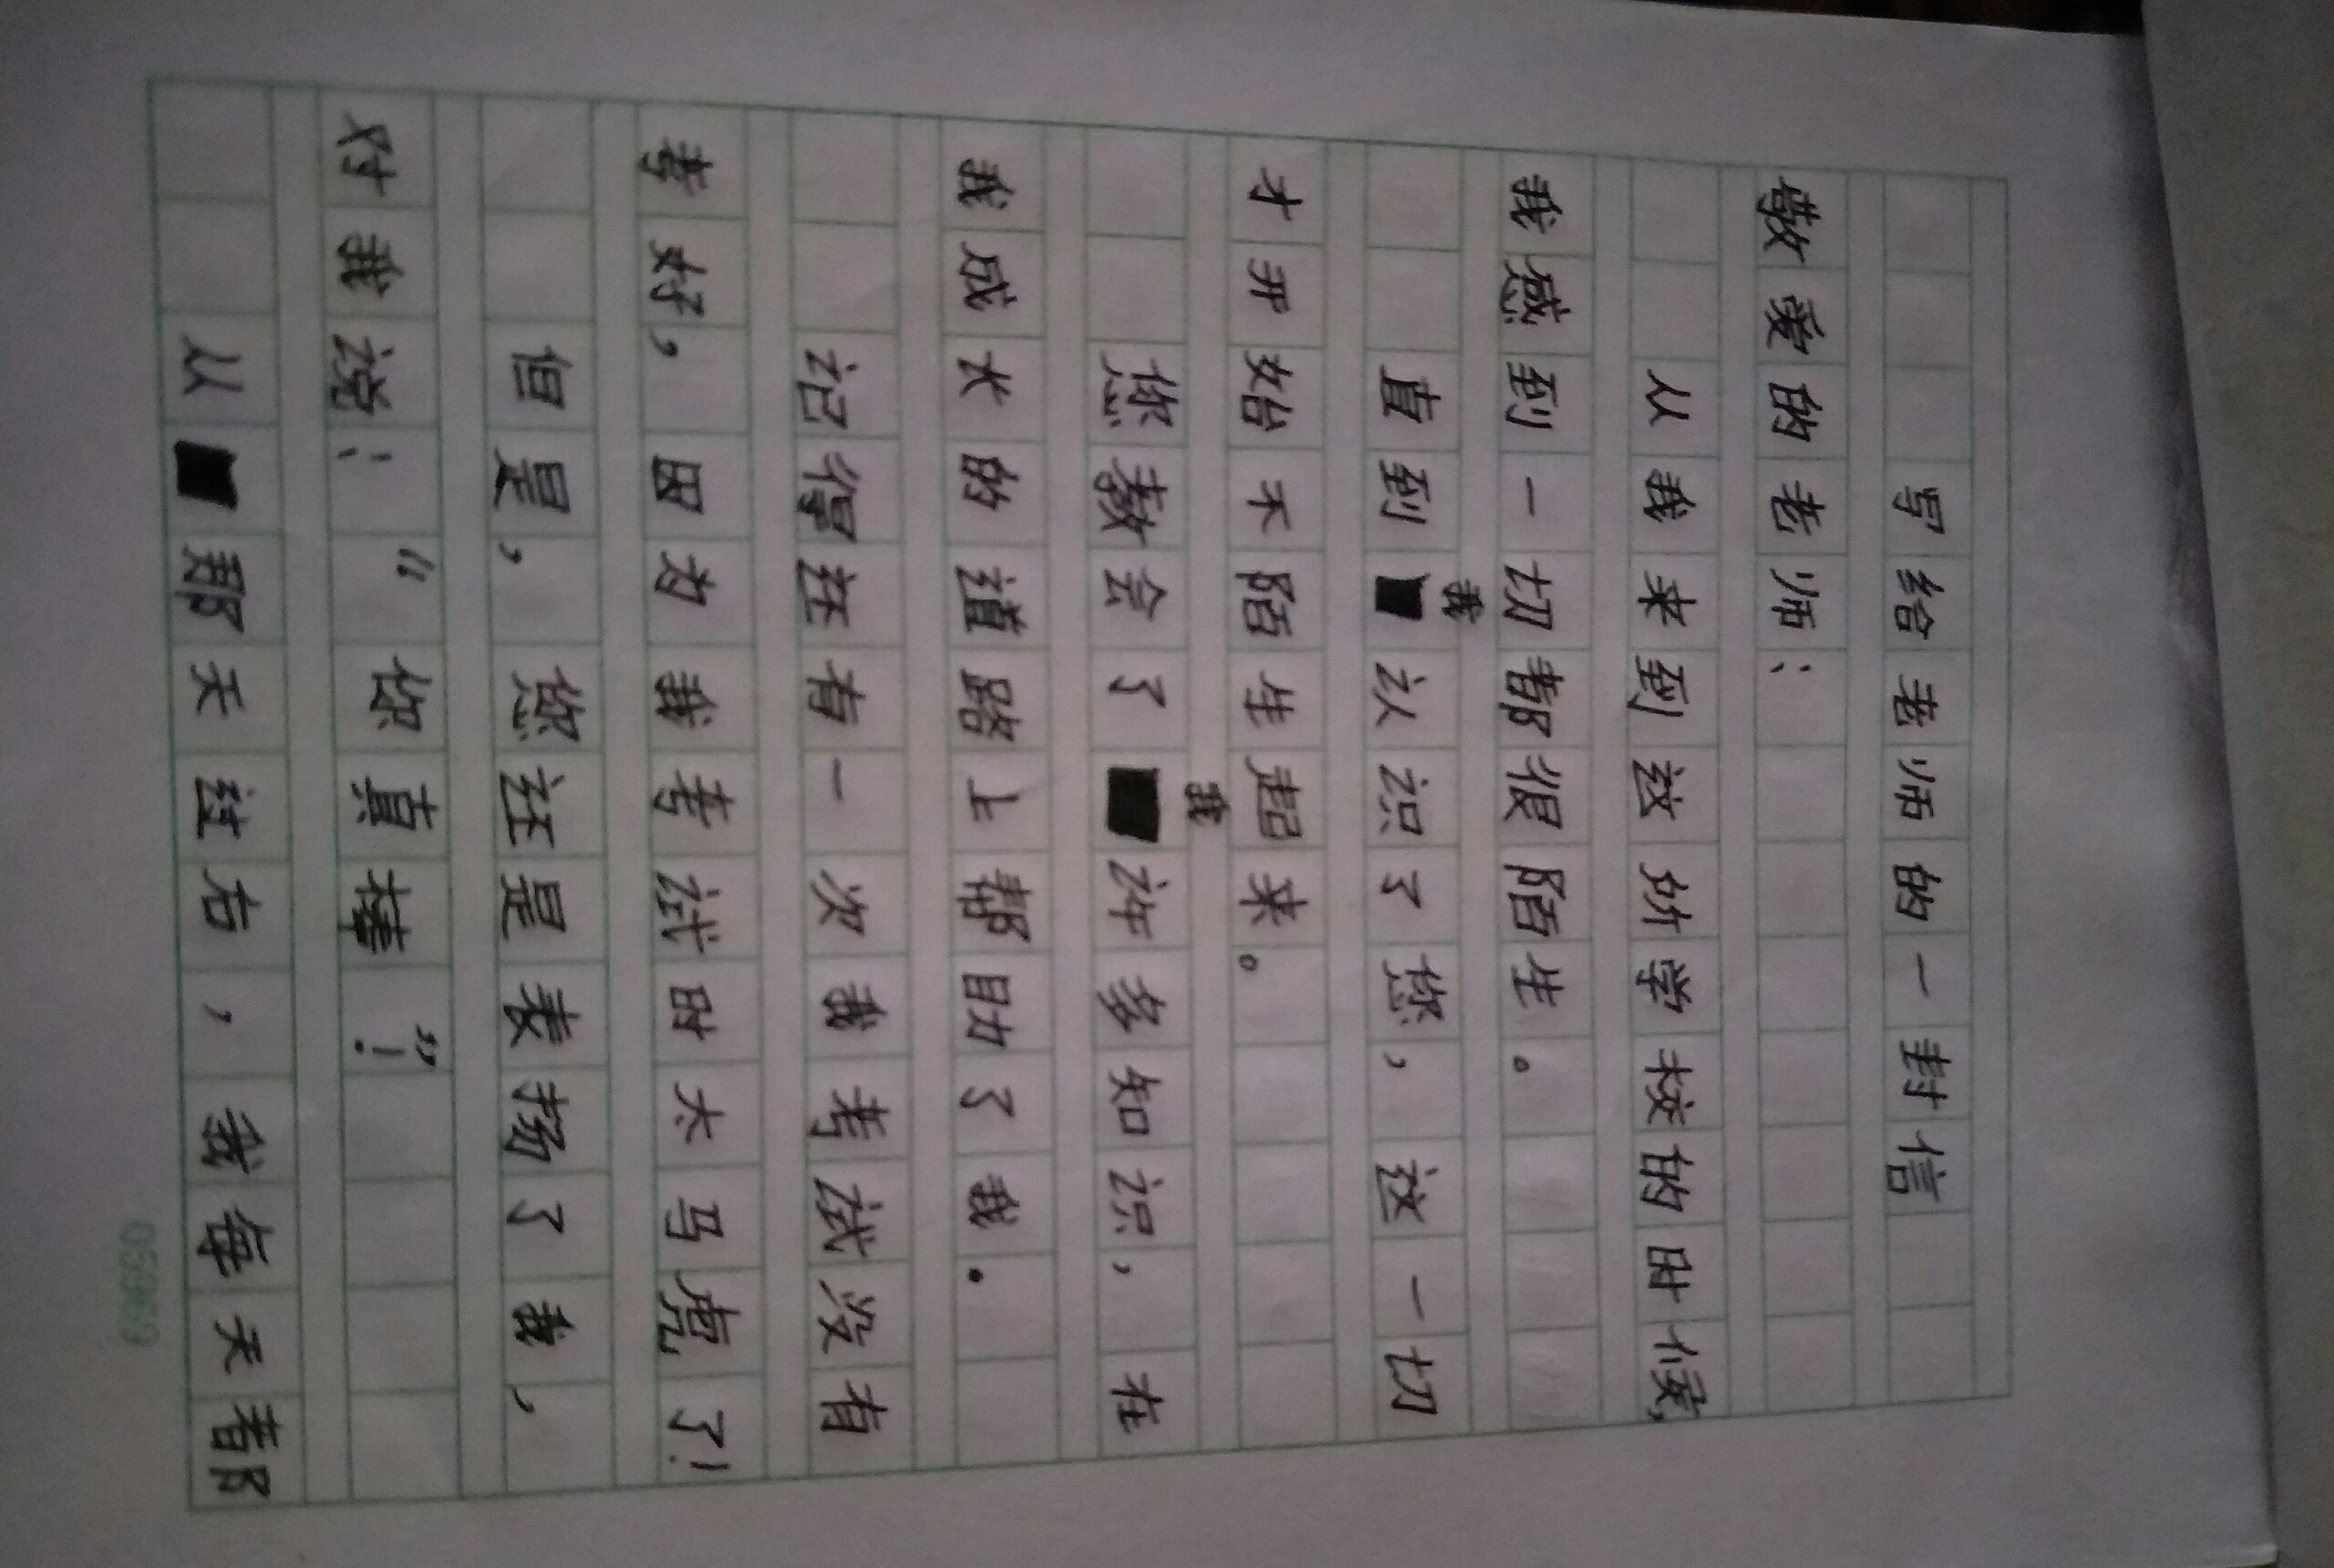 写给老师的一封信
敬爱的老师：
从我来到这所学校的时候，
我感到一切都很陌生。
直到我认识了您，这一切
才开始不陌生起来。
您教会了我许多知识，在
我成长的道路上帮助了我。
记得还有一次我考试没有
考好，因为我考试时太马虎了！
但是，您还是表扬了我，
对我说：“你真棒！”
从那天过后，我每天都